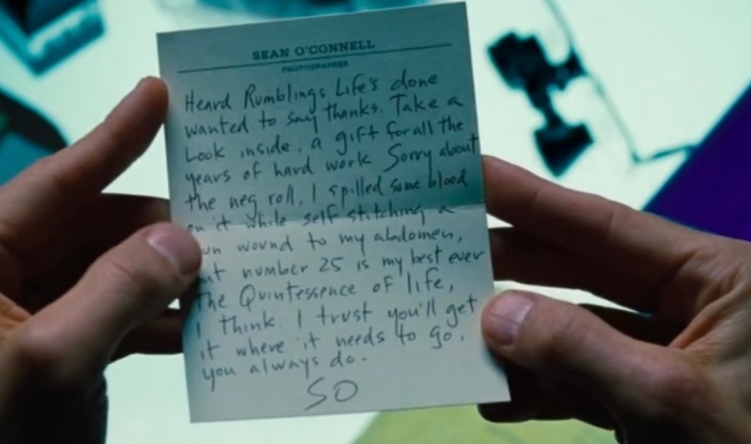 SEAN O'CONNELL
PHOTOGRAPHER
Heard Rumblings Life's done
wanted to say thanks. Take a
Look inside, a gift for all the
years of hard work Sorry about
the neg roll, I spilled some blood
on it while self stitching a
un wound to my abdomen,
ut number 25 is my best ever
The Quintessence of life,
I think I trust you'll get
it where it needs to go,
you always do.
SO